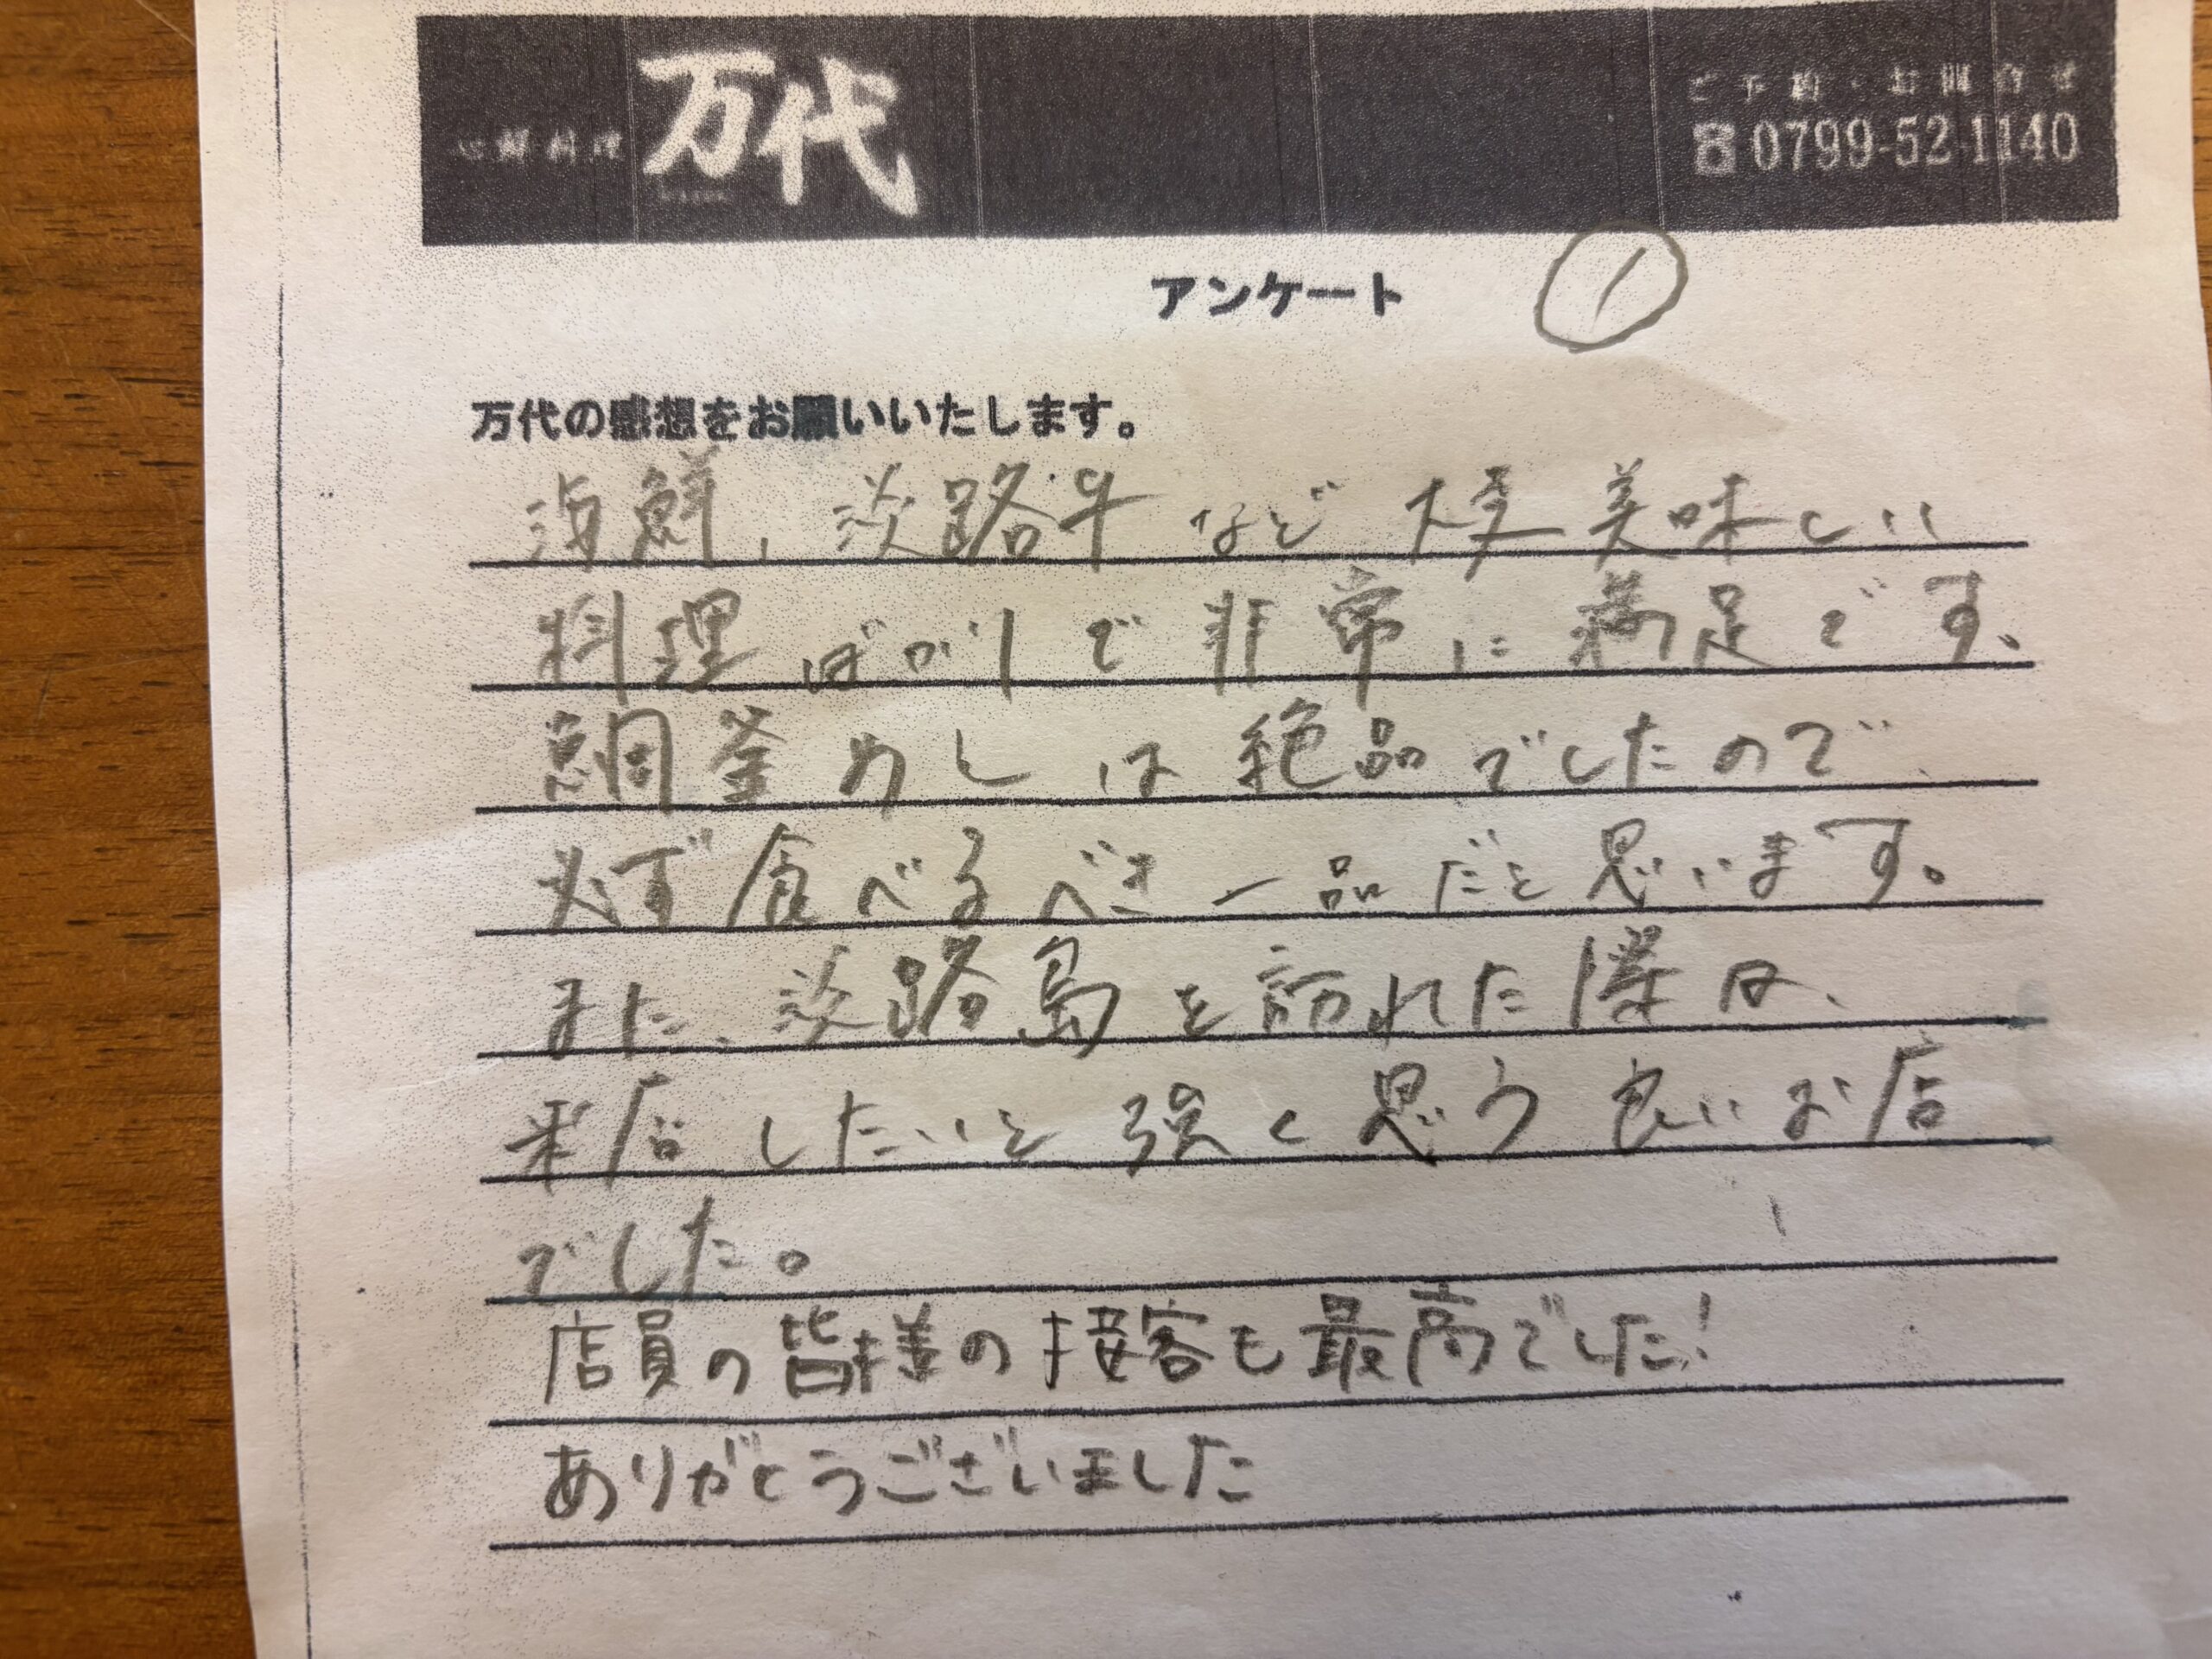 心鮮料理 万代
ご予約・お問合せ
☎0799-52-1140
アンケート ①
万代の感想をお願いいたします。
海鮮、淡路牛など大変美味しい
料理ばかりで非常に満足です、
鯛釜めしは絶品でしたので
必ず食べるべき一品だと思います。
また、淡路島を訪れた際は、
来店したいと強く思う良いお店
でした。
店員の皆様の接客も最高でした!
ありがとうございました